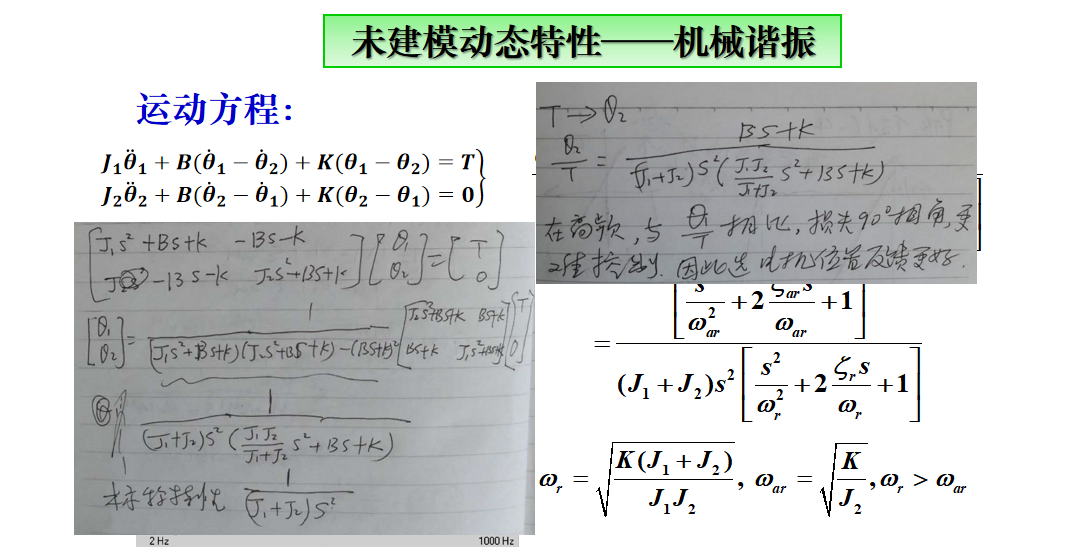 未建模动态特性——机械谐振
运动方程:
J₁θ̈₁ + B(θ̇₁ − θ̇₂) + K(θ₁ − θ₂) = T
J₂θ̈₂ + B(θ̇₂ − θ̇₁) + K(θ₂ − θ₁) = 0
[J₁s²+Bs+k −Bs−k; −Bs−k J₂s²+Bs+k] [θ₁; θ₂] = [T; 0]
[θ₁; θ₂] = 1/((J₁s²+Bs+k)(J₂s²+Bs+k)−(Bs+k)²) [J₂s²+Bs+k Bs+k; Bs+k J₁s²+Bs+k] [T; 0]
1/((J₁+J₂)s²(J₁J₂/(J₁+J₂) s²+Bs+k))
1/((J₁+J₂)s²)
T→θ₂
θ₂/T = (Bs+k)/((J₁+J₂)s²(J₁J₂/(J₁+J₂) s²+Bs+k))
在高频,与 θ₁/T 相比,损失90°相角,更
难控制.因此选电机位置反馈更好.
= [s²/ω²ar + 2 ζar s/ωar + 1] / ((J₁+J₂)s² [s²/ω²r + 2 ζr s/ωr + 1])
ωr = √(K(J₁+J₂)/(J₁J₂)), ωar = √(K/J₂), ωr > ωar
2 Hz 1000 Hz